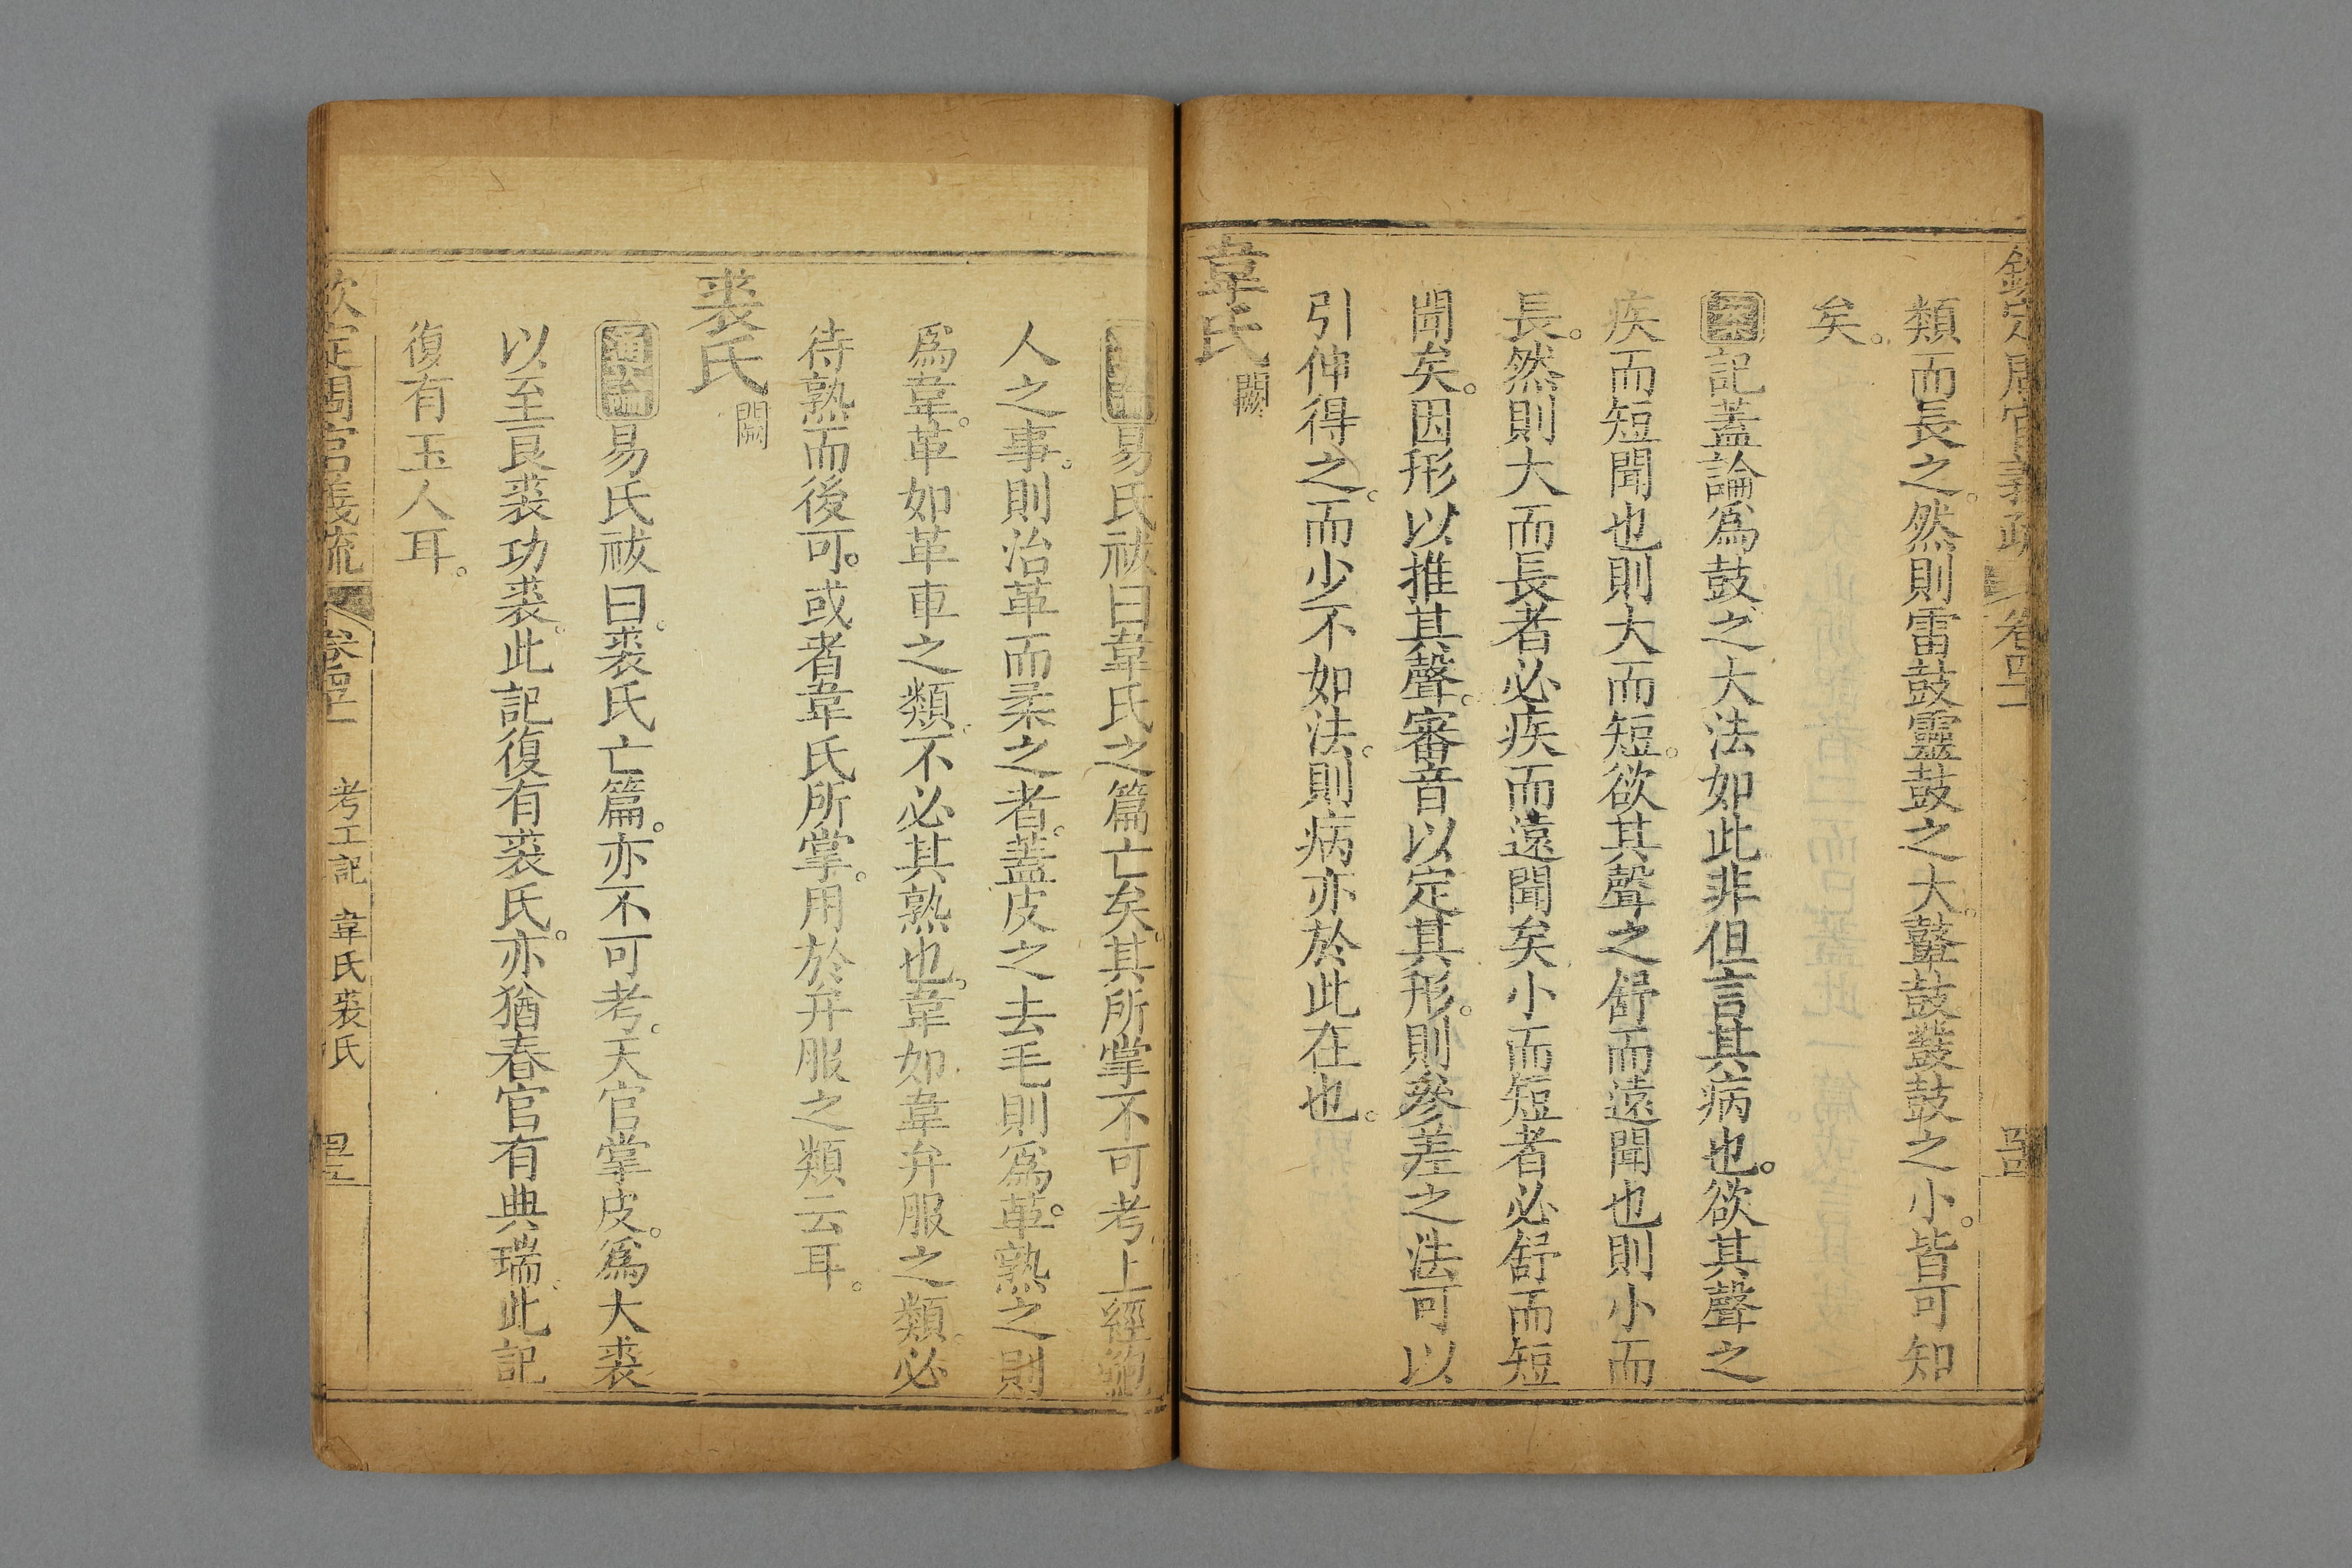 欽定周官義疏 卷四十一
類而長之。然則雷鼓靈鼓之大。鼛鼓鼖鼓之小。皆可知
矣。
案記蓋論爲鼓之大法如此非但言其病也。欲其聲之
疾而短聞也則大而短。欲其聲之舒而遠聞也則小而
長。然則大而長者必疾而遠聞矣小而短者必舒而短
聞矣。因形以推其聲。審音以定其形。則參差之法可以
引伸得之。而少不如法。則病亦於此在也。
韋氏闕
易氏祓曰韋氏之篇亡矣。其所掌不可考上經鮑
人之事。則治革而柔之者。蓋皮之去毛則爲革。革熟之則
爲韋。革如革車之類。不必其熟也。韋如韋弁服之類。必
待熟而後可。或者韋氏所掌。用於弁服之類云耳。
裘氏闕
通論易氏祓曰。裘氏亡篇。亦不可考。天官掌皮。爲大裘
以至良裘功裘。此記復有裘氏。亦猶春官有典瑞。此記
復有玉人耳。
欽定周官義疏 卷四十一 考工記 韋氏裘氏